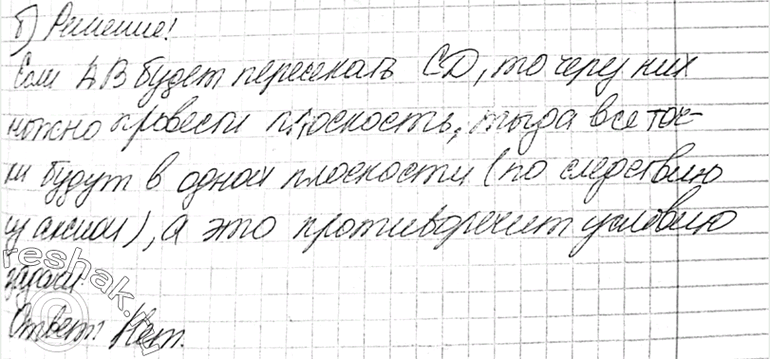 б) Решение!
Если AB будет пересекать CD, то через них
можно провести плоскость, тогда все точ-
ки будут в одной плоскости (по следствию
из аксиом), а это противоречит условию
задачи.
Ответ: Нет.
reshak.ru